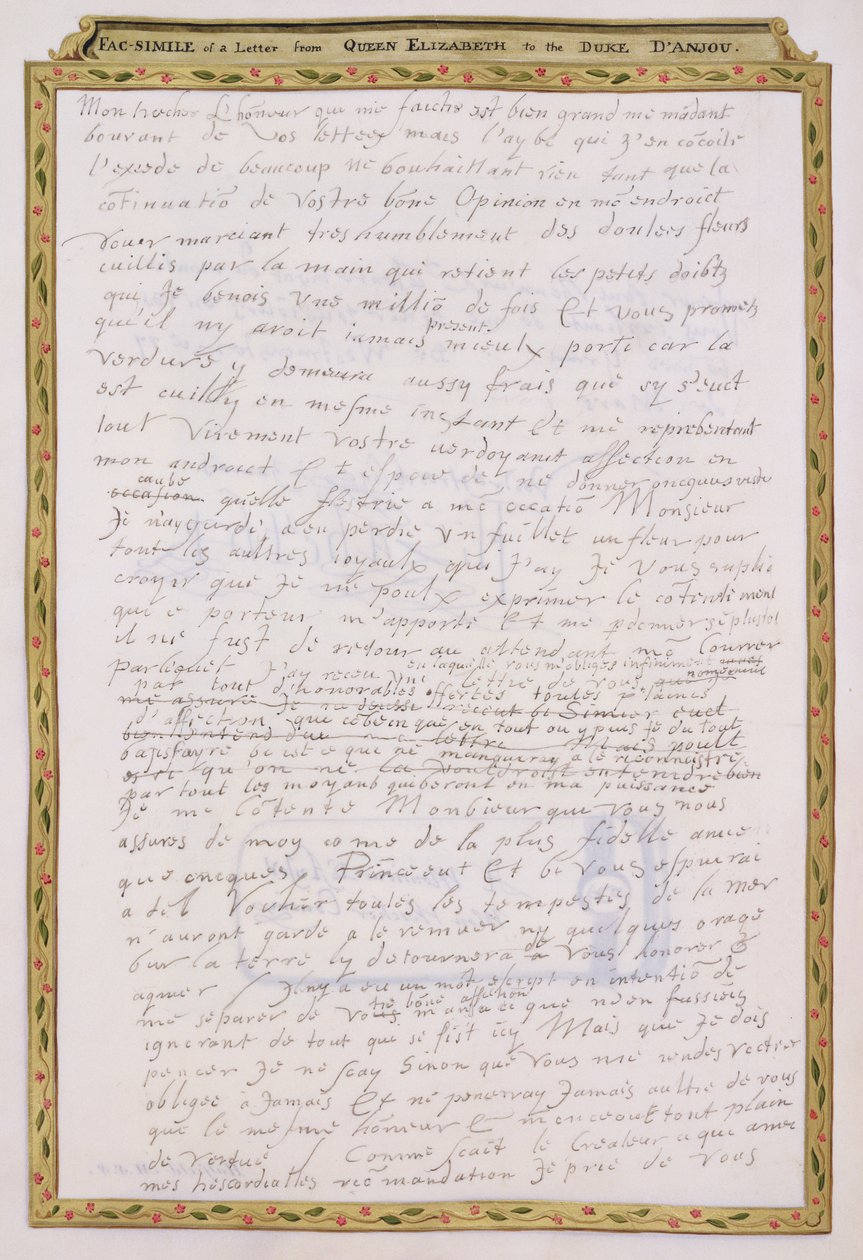 FAC-SIMILE of a Letter from QUEEN ELIZABETH to the DUKE D'ANJOU.
Mon trecher L'hōneur que me faicte est bien grand me mādant
souvant de Vos lettres mais l'ayse qui J'en cōcoits
l'excede de beaucoup Ne souhaittant rien tant que la
cōtinuatiō de Vostre bōne Opinion en mō endroict
Vous marciant tres humblement des doulces fleurs
cuillis par la main qui retient les petits doibtz
qui Je benois Une milliō de fois Et Vous prometz
qu'il ny avoit iamais present mieulx porti car la
verdure y demeura aussy frais que sy s'euct
est cuilly en mesme instant Et me representant
tout Vivement Vostre verdoyant affection en
mon androict Et espoue de ne donner oncques
occasion cause qu'elle flestrie a mō occatiō Monsieur
Je n'ay gardé a en perdre Un fuillet un fleur pour
tout les aultres ioyaulx qui J'ay Je Vous suplie
croyir que Je ne poulx exprimer le cōtentement
que porteur m'apporte Et me pdonner se plustot
il ne fust de retour au attendant mō Courrer
par lequel J'ay receu une lettre de Vous
en laquelle vous m'obliges infiniment
par tout d'honorables offertes toutes plaines
me assure Je
d'affection que cōbein que en tout ou y puis Je du tout
bien lettre Mais poult
satisfayre si ist e que ne manqueray a le reconnaistre
qu'on ne la vouldroist entendre bien
par tout les moyans qui seront en ma puissance
Je me Cōtente Monsieur que Vous nous
assures de moy come de la plus fidelle amie
que oncques Prince eut Et si Vous
a tel toutes les tempestes de la mer
n'auront garde a le remuer ny quelques orage
sur la terre ly detournera de a Vous honorer &
aymer Il ny a eu un mot escript en intentiō de
me separer de Vous tre bōne affection que n'en fussiez
ignorant de tout que se fist icy Mais que Je dois
pencer Je ne scay Sinon que Vous me rendes Vostre
obligee à Jamais Et ne penceray Jamais aultre de vous
que le mesme hōneur Et tout plain
de Vertue Comme scait le Createur a qui
mes rescōmandation Je prie de Vous